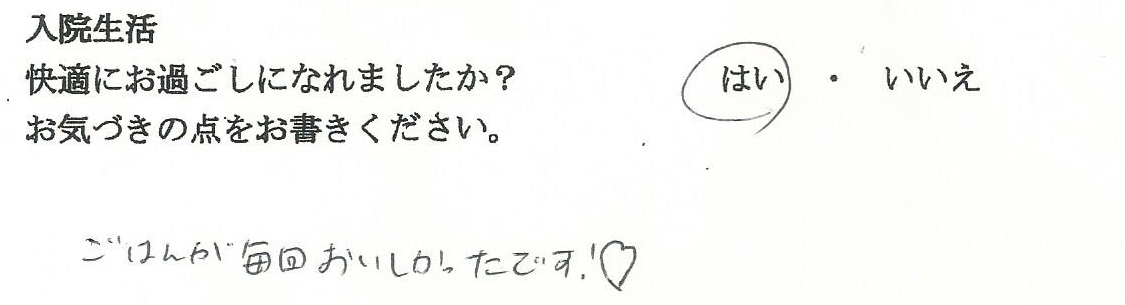 入院生活
快適にお過ごしになれましたか？ はい ・ いいえ
お気づきの点をお書きください。
ごはんが毎回おいしかったです!♡